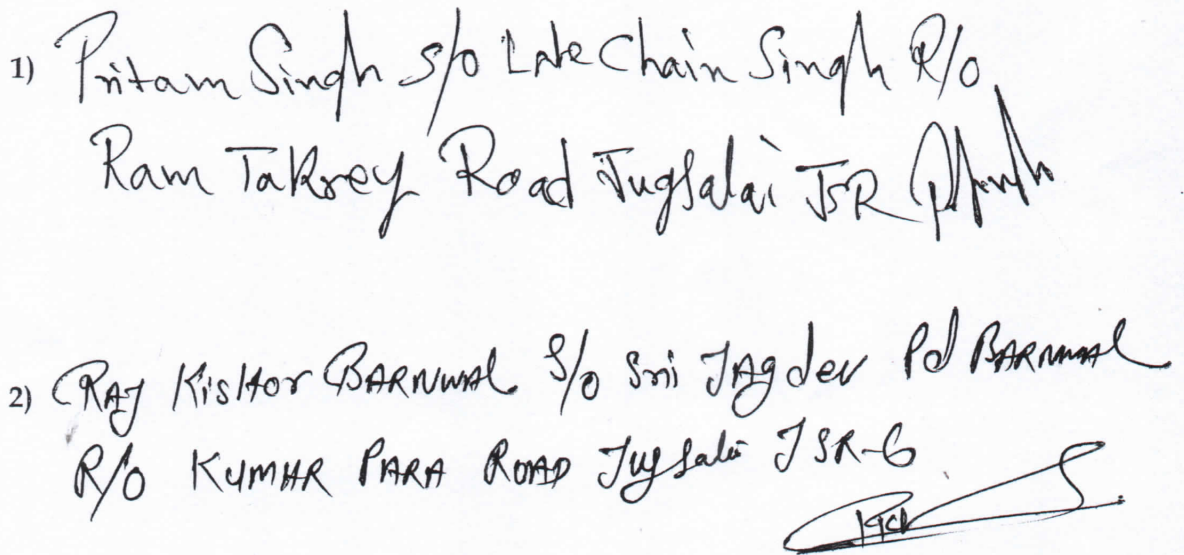 1) Pritam Singh S/o Late Chain Singh R/o
Ram Takrey Road Jugsalai JSR
2) RAJ KisHor BARNWAL S/o Sri JAgdev Pd BARNWAL
R/o KUMHR PARA ROAD Jugsalai JSR-6